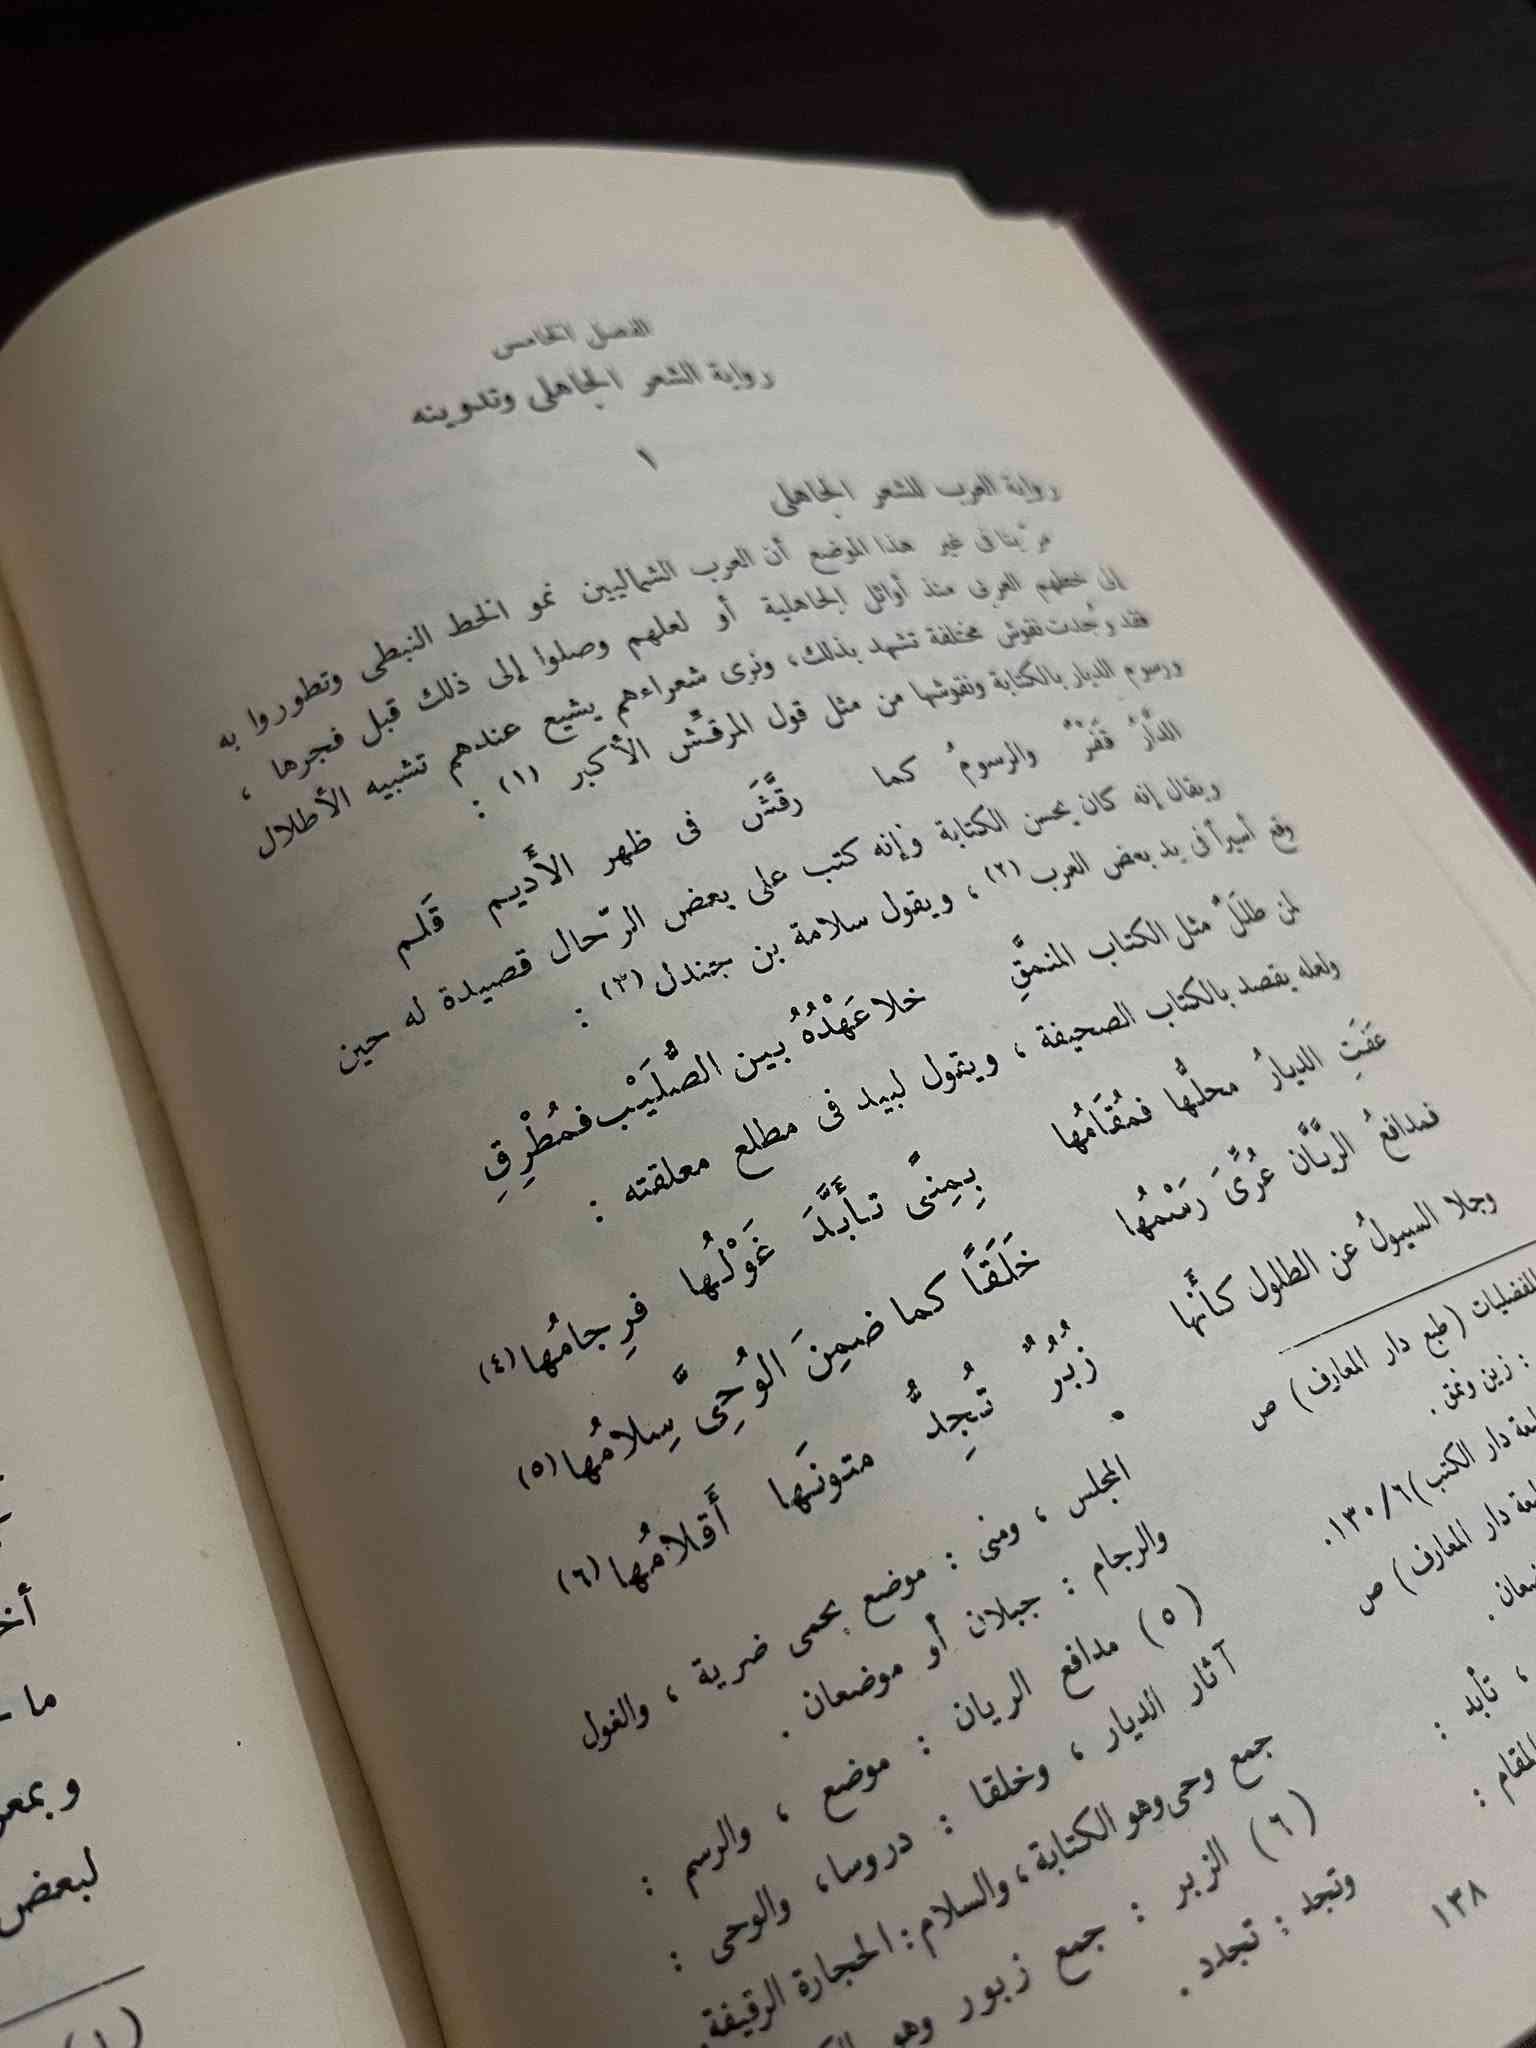 الفصل الخامس
رواية الشعر الجاهلى وتدوينه
١
رواية العرب للشعر الجاهلى
مرّ بنا فى غير هذا الموضع أن العرب الشماليين نمو الخط النبطى وتطوروا به
إلى خطهم العربى منذ أوائل الجاهلية أو لعلهم وصلوا إلى ذلك قبل فجرها ،
فقد وُجدت نقوش مختلفة تشهد بذلك، ونرى شعراءهم يشيع عندهم تشبيه الأطلال
ورسوم الديار بالكتابة ونقوشها من مثل قول المرقِّش الأكبر (١) :
الدَّارُ قَفْرٌ والرسومُ كما رقَّشَ فى ظهر الأَديم قَلم
ويقال إنه كان يحسن الكتابة وإنه كتب على بعض الرّحال قصيدة له حين
وقع أسيراً فى يد بعض العرب (٢) ، ويقول سلامة بن جندل (٣) :
لمن طلَلٌ مثل الكتاب المنمقِّ خلا عَهْدُهُ بين الصُّلَيْب فمُطْرِقِ
ولعله يقصد بالكتاب الصحيفة ، ويقول لبيد فى مطلع معلقته :
عَفَتِ الديارُ محلُّها فمُقَامُها بِمِنىً تأبَّدَ غَوْلُها فرِجامُها (٤)
فمدافعُ الريَّان عُرِّىَ رَسْمُها خَلَقًا كما ضمِنَ الوُحِىَّ سِلامُها (٥)
وجلا السيولُ عن الطلول كأَنها زُبُرٌ تُجِدُّ متونَها أَقلامُها (٦)
المفضليات (طبع دار المعارف) ص
: زين ونمق .
دار الكتب) ١٣٠/٦.
دار المعارف) ص
، تأبد :
المقام :
المجلس ، ومنى : موضع بحمى ضرية ، والغول
والرجام : جبلان أو موضعان .
(٥) مدافع الريان : موضع ، والرسم :
آثار الديار ، وخلقا : دروسا، والوحى :
جمع وحى وهو الكتابة، والسلام: الحجارة الرقيقة.
(٦) الزبر : جمع زبور وهو
وتجد : تجدد .
١٣٨
أخ
ما
وبمعر
لبعض
(١)